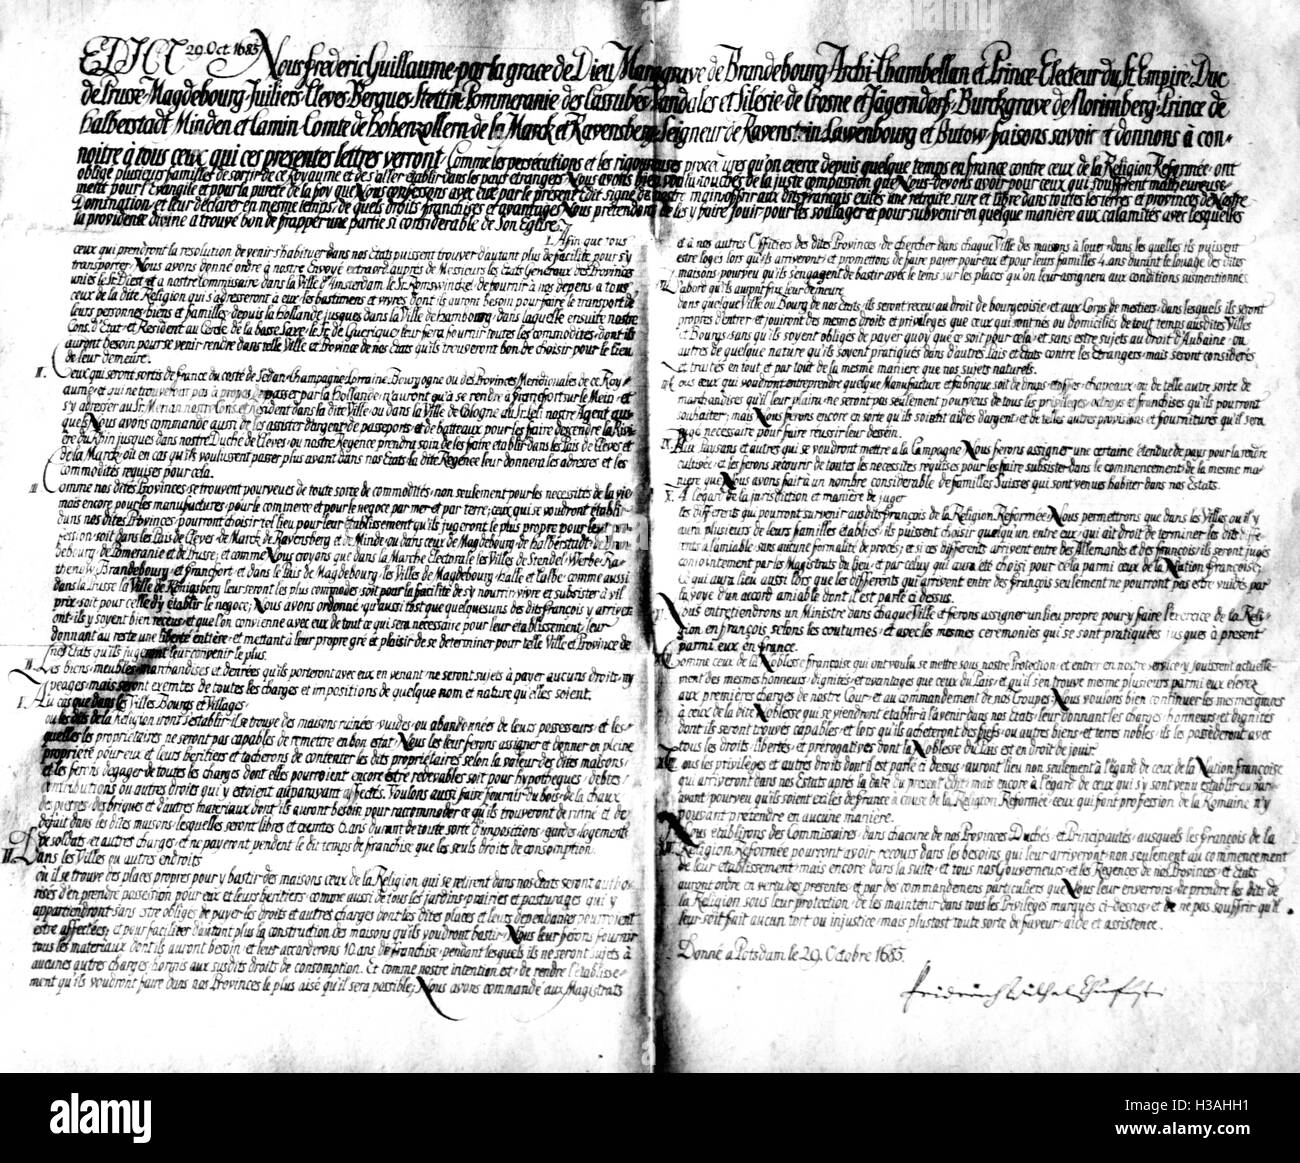 EDICT 29. Oct. 1685. Nous Frederic Guillaume par la grace de Dieu Marggrave de Brandebourg Archi-Chambellan et Prince Electeur du St. Empire, Duc
de Prusse, Magdebourg, Juilliers, Cleves, Bergues, Stettin, Pommeranie, des Cassubes, Vandales et Silesie, de Crosne et Jägerndorf, Burckgrave de Norimberg, Prince de
Halberstadt, Minden et Camin, Comte de Hohenzollern, de la Marck et Ravensberg, Seigneur de Ravenstein, Lawenbourg et Butow, faisons savoir et donnons à con-
noitre à tous ceux qui ces presentes lettres verront. Comme les persécutions et les rigoureuses procedures qu'on exerce depuis quelque temps en France contre ceux de la Religion Reformée, ont
obligé plusieurs familles de sortir de ce Royaume et de s'aller établir dans les pais etrangers, Nous avons bien voulu touchés de la juste compassion que Nous devons avoir pour ceux qui souffrent malheureuse-
ment pour l'Evangile et pour la pureté de la foy que Nous confessons avec eux par le present Edit signé de notre main offrir aux dits français exilés une retraite sure et libre dans toutes les terres et provinces de Nostre
Domination, et leur déclarer en mesme temps, de quels droits, franchises et avantages Nous prétendons de les y faire jouir pour les soulager et pour subvenir en quelque manière aux calamités avec lesquelles
la providence divine a trouvé bon de frapper une partie si considerable de son Eglise.
I. Afin que tous
ceux qui prendront la resolution de venir s'habituer dans nos Etats puissent trouver d'autant plus de facilité pour s'y
transporter, Nous avons donné ordre à nostre Envoyé extraord. aupres de Messieurs les Etats Generaux des Provinces
unies le Sr. Diest, et à nostre Commissaire dans la Ville d'Amsterdam, le Sr. Romswinckel, de fournir à nos depens a tous
ceux de la dite Religion qui s'adresseront à eux les bastimens et vivres dont ils auront besoin pour faire le transport de
leurs personnes, biens et familles, depuis la Hollande jusques dans la Ville de Hambourg, dans laquelle ensuite nostre
Cons. d'Etat et Resident au Cercle de la basse Saxe, le Sr. de Guerique, leur fera fournir toutes les commodites, dont ils
auront besoin pour se venir rendre dans telle Ville et Province de nos Etats qu'ils trouveront bon de choisir pour le lieu
de leur demeure.
II. Ceux qui seront sortis de France du costé de Sedan, Champagne, Lorraine, Bourgogne ou des Provinces Meridionales de ce Roy-
aume, et qui ne trouveront pas à propos de passer par la Hollande, n'auront qu'à se rendre à Francfort sur le Mein, et
s'y adresser au Sr. Merian nostre Cons. et Resident dans la dite Ville ou dans la Ville de Cologne au Sr. Leli nostre Agent, aus-
quels Nous avons commandé aussi de les assister d'argent, de passeports, et de batteaux pour les faire descendre la Rivi-
ère du Rhin jusques dans nostre Duché de Cleves, ou nostre Regence prendra soin de les faire établir dans les Pais de Cleves et
de la Marck, où en cas qu'ils voulussent passer plus avant dans nos Etats, la dite Regence leur donnera les adresses et les
commodités requises pour cela.
III. Comme nos dites Provinces se trouvent pourveues de toute sorte de commodités, non seulement pour les necessités de la vie
mais encore pour les manufactures, pour le commerce et pour le negoce par mer et par terre, ceux qui se voudront établir
dans nos dites Provinces, pourront choisir tel lieu pour leur établissement qu'ils jugeront le plus propre pour leur pro-
fession, soit dans les Pais de Cleves, de Marck, de Ravensberg et de Minde, ou dans ceux de Magdebourg, de Halberstadt, de Bran-
debourg, de Pomeranie et de Prusse, et comme Nous croyons que dans la Marche Electorale les Villes de Stendel, Werbe, Ra-
thenow, Brandebourg, et Francfort, et dans le Pais de Magdebourg, les Villes de Magdebourg, Halle et Calbe, comme aussi
dans la Prusse la Ville de Königsberg leur seront les plus commodes, soit pour la facilité de s'y nourrir, vivre et subsister à vil
prix, soit pour celle d'y établir le negoce, Nous avons ordonné qu'aussi tost que quelques uns des dits françois y arrivez
ont, ils y soyent bien receus, et que l'on convienne avec eux de tout ce qui sera necessaire pour leur établissement, leur
donnant au reste une liberté entière, et mettant à leur propre gré et plaisir de se determiner pour telle Ville et Province de
nos Etats qu'ils jugeront leur convenir le plus.
IV. Les biens, meubles, marchandises et denrées qu'ils porteront avec eux en venant ne seront sujets à payer aucuns droits, ny
peages, mais seront exemtes de toutes les charges et impositions de quelque nom et nature qu'elles soient.
V. Au cas que dans les Villes, Bourgs et Villages,
ou les dits de la Religion iront s'establir, il se trouve des maisons ruinées, vuides, ou abandonnées de leurs possesseurs, et les-
quelles les propriétaires ne seront pas capables de remettre en bon estat, Nous les leur ferons assigner et donner en pleine
propriété pour eux et leurs heritiers et tacherons de contenter les dits propriétaires selon la valeur des dites maisons,
et les ferons degager de toutes les charges, dont elles pourroient encore estre redevables, soit pour hypotheques, debtes,
contributions ou autres droits qui y estoient auparavant affectés. Voulons aussi faire fournir du bois, de la chaux,
des pierres, des briques et d'autres materiaux, dont ils auront besoin pour raccommoder ce qu'ils trouveront de ruiné et de
defait dans les dites maisons, lesquelles seront libres et exemtes 6. ans durant de toute sorte d'impositions, gardes, logements
de soldats, et autres charges et ne payeront pendent le dit temps de franchise que les seuls droits de consomption.
VI. Dans les Villes ou autres endroits
ou il se trouve des places propres pour y bastir des maisons, ceux de la Religion, qui se retirent dans nos états seront autho-
risés d'en prendre possession pour eux et leurs heritiers, comme aussi de tous les jardins, prairies et pasturages, qui y
appartiendront sans estre obligés de payer les droits et autres charges dont les dites places et leurs dependances pourroient
estre affectées, et pour faciliter d'autant plus la construction des maisons qu'ils voudront bastir, Nous leur ferons fournir
tous les materiaux dont ils auront besoin, et leur accorderons 10. ans de franchise, pendant lesquels ils ne seront sujets à
aucunes autres charges hormis aux susdits droits de consomption. Et comme nostre intention est, de rendre l'établisse-
ment qu'ils voudront faire dans nos Provinces le plus aisé qu'il sera possible, Nous avons commandé aux Magistrats
et à nos autres Officiers des dites Provinces, de chercher dans chaque Ville des maisons à louer, dans les quelles ils puissent
estre logés lors qu'ils arriveront, et promettons de faire payer pour eux et pour leurs familles 4. ans durant le louage des dites
maisons, pourveu qu'ils s'engagent de bastir avec le tems sur les places qu'on leur assignera aux conditions susmentionnées
VII. D'abord qu'ils auront fixé leur demeure
dans quelque Ville ou Bourg de nos Etats, ils seront receus au droit de bourgeoisie, et aux Corps de mestiers, dans lesquels ils seront
propres d'entrer, et jouiront des mesmes droits et privileges que ceux qui sont nés ou domiciliés de tout temps aus dites Villes
et Bourgs, sans qu'ils soyent obligés de payer quoy que ce soit pour cela, et sans estre sujets au droit d'Aubaine, ou
autres de quelque nature qu'ils soyent pratiqués dans d'autres Pais et Etats contre les Etrangers, mais seront considerés
et traités en tout et par tout de la mesme maniere que nos sujets naturels.
VIII. Tous ceux qui voudront entreprendre quelque Manufacture et fabrique, soit de draps, etoffes, chapeaux, ou de telle autre sorte de
marchandises qu'il leur plaira, ne seront pas seulement pourveus de tous les privileges, octroys et franchises qu'ils pourront
souhaiter, mais Nous ferons encore en sorte qu'ils soient aidés d'argent et de telles autres provisions et fournitures qu'il sera
jugé necessaire pour faire réussir leur dessein.
IX. Aux Paisans et autres qui se voudront mettre à la Campagne, Nous ferons assigner une certaine étendue de pays pour la rendre
cultivée, et les ferons secourir de toutes les necessités requises pour les faire subsister dans le commencement de la mesme ma-
nière que Nous avons fait à un nombre considerable de familles Suisses qui sont venues habiter dans nos Etats.
X. A l'egard de la jurisdiction et manière de juger
les differents qui pourront survenir aus dits françois de la Religion Reformée, Nous permettrons que dans les Villes ou il y
aura plusieurs de leurs familles établies, ils puissent choisir quelqu'un entre eux, qui ait droit de terminer les dits diffe-
rents à l'amiable, sans aucune formalité de procés, et si ces differents arrivent entre des Allemands et des françois, ils seront jugés
conjointement par les Magistrats du lieu, et par celuy qui aura été choisi pour cela parmi ceux de la Nation Françoise,
ce qui aura lieu aussi lors que les differents qui arrivent entre des François seulement ne pourront pas etre vuidés par
la voye d'un accord amiable dont il est parlé a dessus.
Nous entretiendrons un Ministre dans chaque Ville et ferons assigner un lieu propre pour y faire l'exercice de la Reli-
gion en françois, selons les coutumes, et avec les mesmes ceremonies qui se sont pratiquées jusques à present
parmi eux en france.
Comme ceux de la Noblesse françoise qui ont voulu se mettre sous nostre Protection et entrer en nostre service y jouissent actuelle-
ment des mesmes honneurs, dignités et avantages que ceux du Pais, et qu'il s'en trouve mesme plusieurs parmi eux elevez
aux premières charges de notre Cour et au commandement de nos Troupes, Nous voulons bien continuer les mesmes graces
à ceux de la dite Noblesse qui se viendront établir à l'avenir dans nos Etats, leur donnant les charges, honneurs et dignités
dont ils seront trouvés capables, et lors qu'ils acheteront des fiefs, ou autres biens et terres nobles, ils les possederont avec
tous les droits, libertés, et prerogatives dont la Noblesse du Pais est en droit de jouir.
Tous les privileges et autres droits dont il est parlé à dessus, auront lieu non seulement à l'égard de ceux de la Nation françoise
qui arriveront dans nos Etats après la date du present Edit, mais encore à l'égard de ceux qui s'y sont venu establir aupar-
avant, pourveu qu'ils soient exilés de France à cause de la Religion Reformée, ceux qui font profession de la Romaine n'y
pouvant pretendre en aucune manière.
Nous établirons des Commissaires, dans chacune de nos Provinces, Duchés, et Principautés, ausquels les françois de la
Religion Reformée pourront avoir recours dans les besoins qui leur arriveront, non seulement au commencement
de leur établissement, mais encore dans la suite, et tous nos Gouverneurs, et les Regences de nos Provinces et Etats
auront ordre en vertu des presentes et par des commandemens particuliers que Nous leur enverrons, de prendre les dits de
la Religion sous leur protection, de les maintenir dans tous les Privileges marqués ci-dessus, et de ne pas souffrir qu'il
leur soit fait aucun tort ou injustice, mais plustost toute sorte de faveur, aide et assistence.
Donné a Potsdam, le 29. Octobre 1685.
Friedrich Wilhelm Churfürst
alamy
Image ID: H3AHH1
www.alamy.com